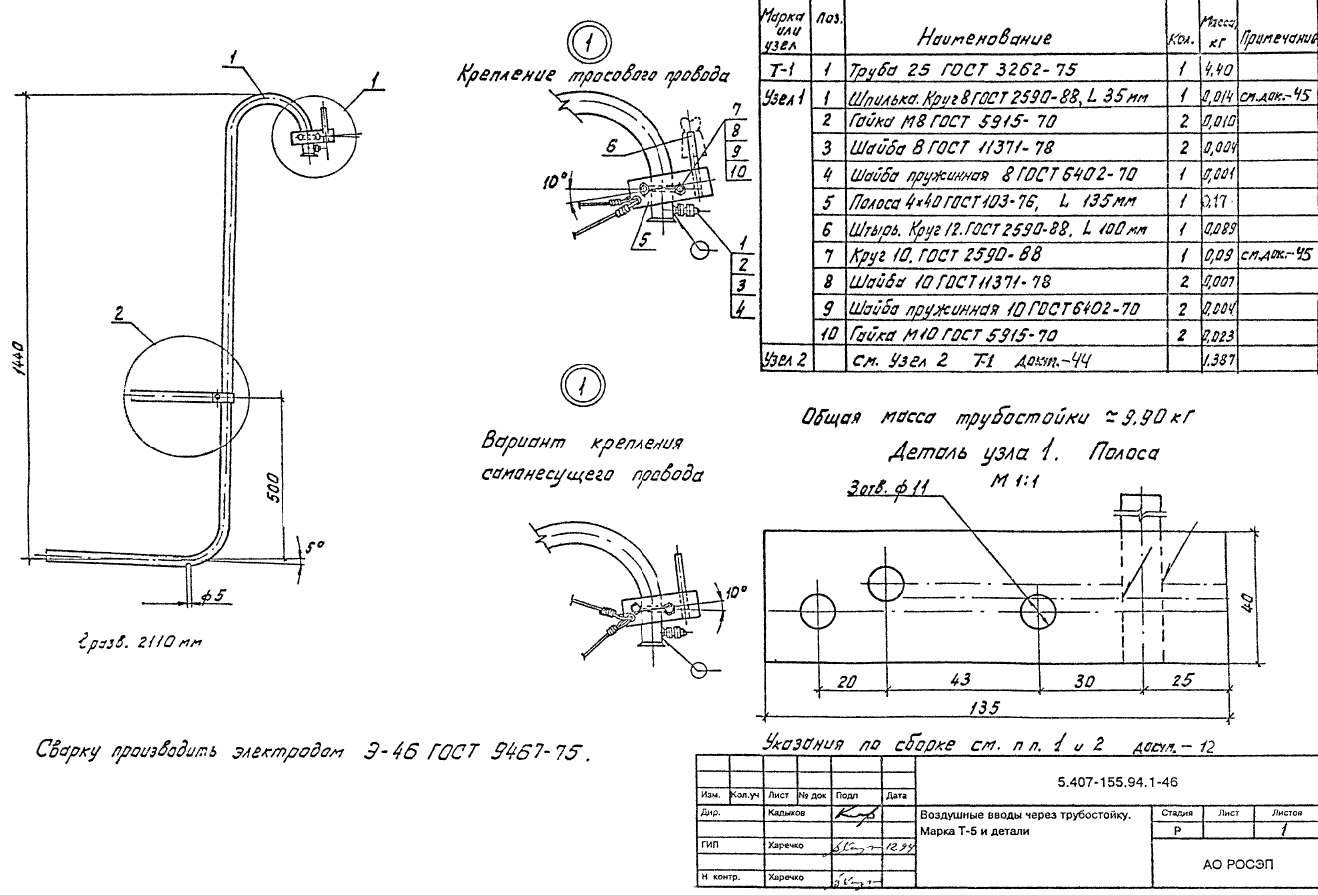 1
1
2
1440
500
5°
ф5
ℓ разв. 2110 мм
Сварку производить электродом Э-46 ГОСТ 9467-75.
1
Крепление тросового провода
7
8
9
10
6
10°
5
1
2
3
4
1
Вариант крепления
самонесущего провода
10°
Марка или узел Поз. Наименование Кол. Масса, кг Примечание
Т-1 1 Труба 25 ГОСТ 3262-75 1 4,40
Узел 1 1 Шпилька. Круг 8 ГОСТ 2590-88, L 35 мм 1 0,014 см.док.-45
2 Гайка М8 ГОСТ 5915-70 2 0,010
3 Шайба 8 ГОСТ 11371-78 2 0,004
4 Шайба пружинная 8 ГОСТ 6402-70 1 0,001
5 Полоса 4×40 ГОСТ 103-76, L 135 мм 1 0,17
6 Штырь. Круг 12. ГОСТ 2590-88, L 100 мм 1 0,089
7 Круг 10. ГОСТ 2590-88 1 0,09 см.док.-45
8 Шайба 10 ГОСТ 11371-78 2 0,007
9 Шайба пружинная 10 ГОСТ 6402-70 2 0,004
10 Гайка М10 ГОСТ 5915-70 2 0,023
Узел 2 см. Узел 2 Т-1 докум.-44 1.387
Общая масса трубостойки ≈ 9.90 кг
Деталь узла 1. Полоса
М 1:1
3 отв. ф 11
40
20 43 30 25
135
Указания по сборке см. п п. 1 и 2 докум. - 12
5.407-155.94.1-46
Изм. Кол.уч Лист № док Подп Дата
Дир. Кадыков
ГИП Харечко 12.94
Н контр. Харечко
Воздушные вводы через трубостойку.
Марка Т-5 и детали
Стадия Лист Листов
Р 1
АО РОСЭП